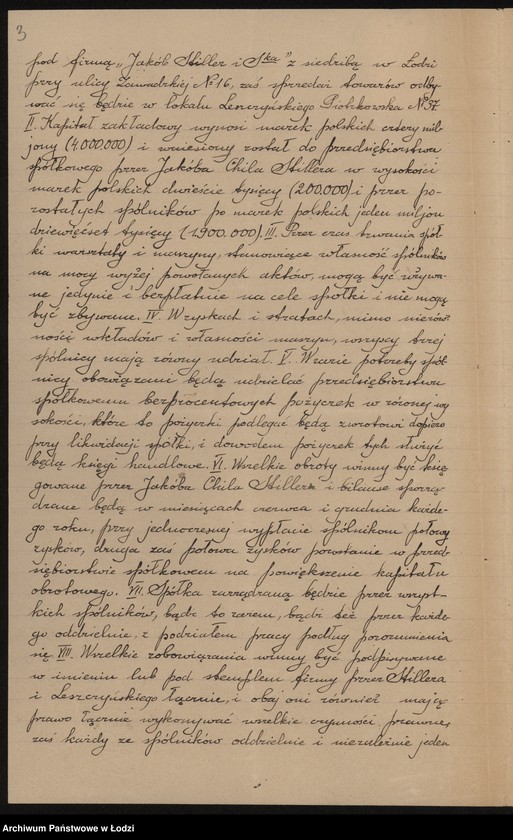 3
pod firmą „Jakób Hiller i Ska" z siedzibą w Łodzi
przy ulicy Zawadzkiej № 16, zaś sprzedaż towarów odby-
wać się będzie w lokalu Leszczyńskiego Piotrkowska № 37
II. Kapitał zakładowy wynosi marek polskich cztery mil-
jony (4.000.000) i wniesiony został do przedsiębiorstwa
spółkowego przez Jakóba Chila Hillera w wysokości
marek polskich dwieście tysięcy (200.000) i przez po-
zostałych spólników po marek polskich jeden miljon
dziewięćset tysięcy (1.900.000). III. Przez czas trwania spół-
ki warsztaty i maszyny, stanowiące własność spólników
na mocy wyżej powołanych aktów, mogą być używa-
ne jedynie i bezpłatnie na cele spółki i nie mogą
być zbywane. IV. W zyskach i stratach, mimo nierów-
ności wkładów i własności maszyn, wszyscy trzej
spólnicy mają równy udział. V. W razie potrzeby spól-
nicy obowiązani będą udzielać przedsiębiorstwu
spółkowemu bezprocentowych pożyczek w równej wy-
sokości, które to pożyczki podlegać będą zwrotowi dopiero
przy likwidacji spółki, i dowodem pożyczek tych służyć
będą księgi handlowe. VI. Wszelkie obroty winny być księ-
gowane przez Jakóba Chila Hillera i bilanse sporzą-
dzane będą w miesiącach czerwcu i grudniu każde-
go roku, przy jednoczesnej wypłacie spólnikom połowy
zysków, druga zaś połowa zysków pozostanie w przed-
siębiorstwie spółkowem na powiększenie kapitału
obrotowego. VII. Spółka zarządzaną będzie przez wszyst-
kich spólników, bądź to razem, bądź też przez każde-
go oddzielnie, z podziałem pracy podług porozumienia
się. VIII. Wszelkie zobowiązania winny być podpisywane
w imieniu lub pod stemplem firmy przez Hillera
i Leszczyńskiego łącznie, i obaj oni również mają
prawo łącznie wykonywać wszelkie czynności prawne,
zaś każdy ze spólników oddzielnie i niezależnie jeden
Archiwum Państwowe w Łodzi